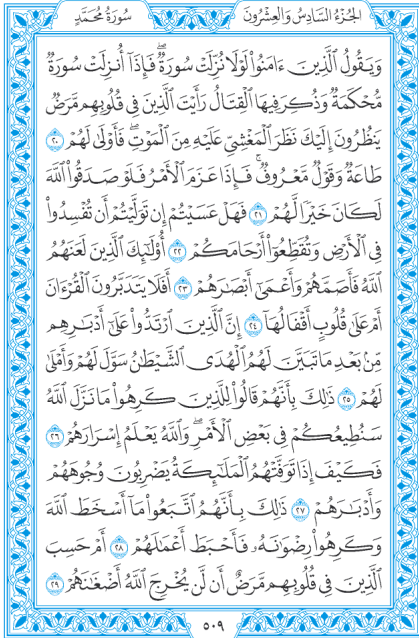 الجزء السادس والعشرون
سورة محمد
وَيَقُولُ ٱلَّذِينَ ءَامَنُوا۟ لَوْلَا نُزِّلَتْ سُورَةٌۖ فَإِذَآ أُنزِلَتْ سُورَةٌ
مُّحْكَمَةٌ وَذُكِرَ فِيهَا ٱلْقِتَالُ رَأَيْتَ ٱلَّذِينَ فِى قُلُوبِهِم مَّرَضٌ
يَنظُرُونَ إِلَيْكَ نَظَرَ ٱلْمَغْشِىِّ عَلَيْهِ مِنَ ٱلْمَوْتِۖ فَأَوْلَىٰ لَهُمْ ٢٠
طَاعَةٌ وَقَوْلٌ مَّعْرُوفٌۚ فَإِذَا عَزَمَ ٱلْأَمْرُ فَلَوْ صَدَقُوا۟ ٱللَّهَ
لَكَانَ خَيْرًا لَّهُمْ ٢١ فَهَلْ عَسَيْتُمْ إِن تَوَلَّيْتُمْ أَن تُفْسِدُوا۟
فِى ٱلْأَرْضِ وَتُقَطِّعُوٓا۟ أَرْحَامَكُمْ ٢٢ أُو۟لَٰٓئِكَ ٱلَّذِينَ لَعَنَهُمُ
ٱللَّهُ فَأَصَمَّهُمْ وَأَعْمَىٰٓ أَبْصَٰرَهُمْ ٢٣ أَفَلَا يَتَدَبَّرُونَ ٱلْقُرْءَانَ
أَمْ عَلَىٰ قُلُوبٍ أَقْفَالُهَآ ٢٤ إِنَّ ٱلَّذِينَ ٱرْتَدُّوا۟ عَلَىٰٓ أَدْبَٰرِهِم
مِّنۢ بَعْدِ مَا تَبَيَّنَ لَهُمُ ٱلْهُدَى ٱلشَّيْطَٰنُ سَوَّلَ لَهُمْ وَأَمْلَىٰ
لَهُمْ ٢٥ ذَٰلِكَ بِأَنَّهُمْ قَالُوا۟ لِلَّذِينَ كَرِهُوا۟ مَا نَزَّلَ ٱللَّهُ
سَنُطِيعُكُمْ فِى بَعْضِ ٱلْأَمْرِۖ وَٱللَّهُ يَعْلَمُ إِسْرَارَهُمْ ٢٦
فَكَيْفَ إِذَا تَوَفَّتْهُمُ ٱلْمَلَٰٓئِكَةُ يَضْرِبُونَ وُجُوهَهُمْ
وَأَدْبَٰرَهُمْ ٢٧ ذَٰلِكَ بِأَنَّهُمُ ٱتَّبَعُوا۟ مَآ أَسْخَطَ ٱللَّهَ
وَكَرِهُوا۟ رِضْوَٰنَهُۥ فَأَحْبَطَ أَعْمَٰلَهُمْ ٢٨ أَمْ حَسِبَ
ٱلَّذِينَ فِى قُلُوبِهِم مَّرَضٌ أَن لَّن يُخْرِجَ ٱللَّهُ أَضْغَٰنَهُمْ ٢٩
٥٠٩